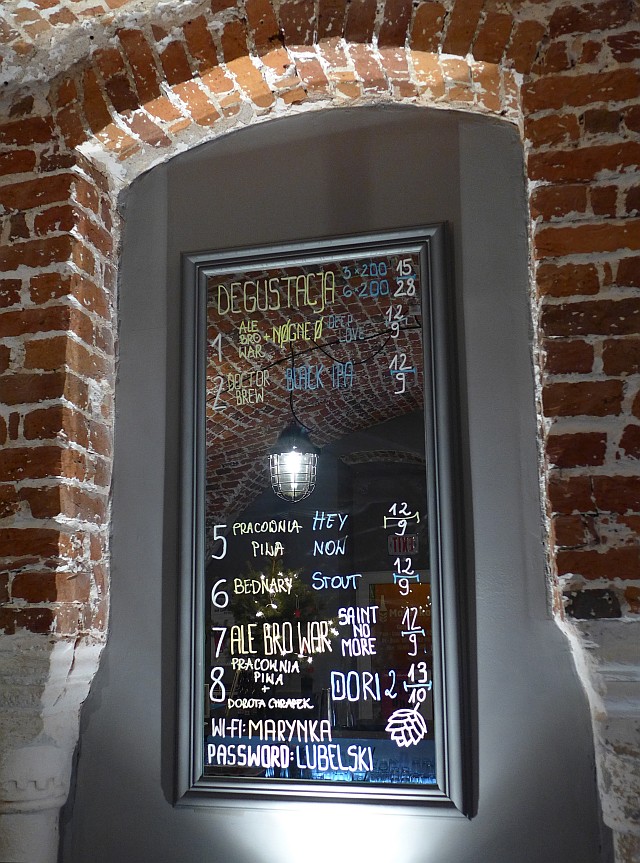 DEGUSTACJA 3×200 15
6×200 28
1 ALE BRO WAR + NØGNE Ø DEEP LOVE 12/9
2 DOCTOR BREW BLACK IPA 12/9
5 PRACOWNIA PIWA HEY NON 12/9
6 BEDNARY STOUT 12/9.
7 ALE BRO WAR SAINT NO MORE 12/9.
8 PRACOWNIA PIWA + DOROTA CHRAPEK DORI 2 13/10
WI-FI: MARYNKA
PASSWORD: LUBELSKI